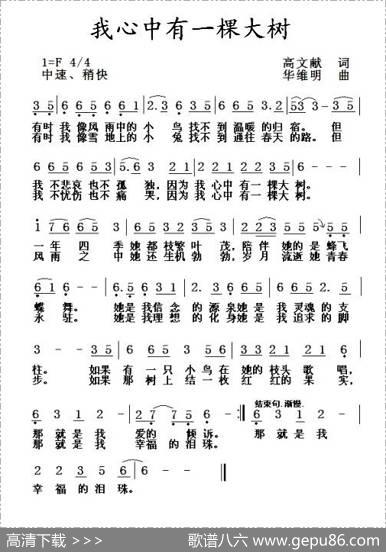 我心中有一棵大树
1=F 4/4
高文献 词
中速、稍快
华维明 曲
3 5 6 6 5 6 6 1 2. 3 6 3 5 6 6 5 6 3. 2 5 3 3 - - 3 5
有时我像风雨中的小 鸟找不到温暖的归宿。 但
有时我像雪地上的小 兔找不到通往春天的路。但
6 5 6 6 5 6 5. 6 3 2 2 1 2 2 1 1 2 2 3 5 6 - -
我不悲哀也不孤 独,因为我心中有一棵大树。
我不忧伤也不痛 哭,因为我心中有一棵大树。
一年四 季她都枝繁叶 茂,陪伴她的是蜂飞
风雨之 中她还生机勃 勃,岁月流逝她青春
蝶舞。 她是我信念的源泉她是我灵魂的支
永驻。 她是我理想的化身她是我追求的脚
柱。 如果有一只小鸟在她的枝头歌唱,
步。 如果那树上结一枚红红的果实,
结束句.渐慢
那就是我 爱的 倾诉。 那就是我
那就是我 幸福的泪珠。
2 2 2 3 5 6 6 - - -
幸福的泪珠。
高清下载 >>>
歌谱八六 www.gepu86.com